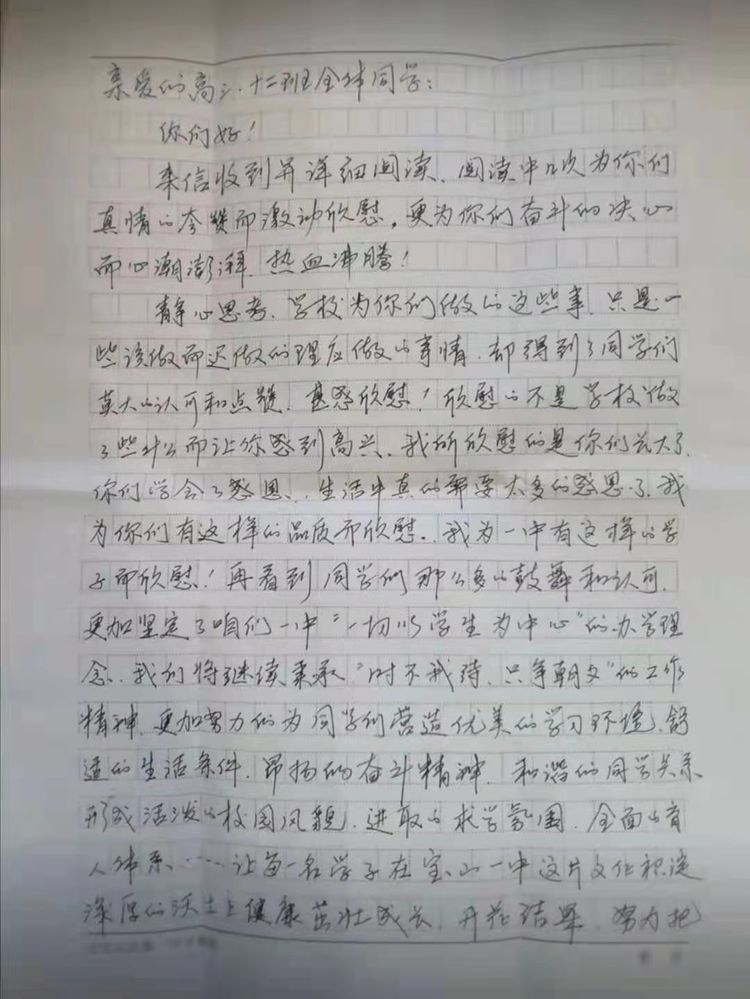 亲爱的高三.十二班全体同学：
你们好！
来信收到并详细阅读、阅读中几次为你们
真情的夸赞而激动欣慰。更为你们奋斗的决心
而心潮澎湃、热血沸腾！
静心思考、学校为你们做的这些事、只是一
些该做而迟做的理应做的事情、却得到了同学们
莫大的认可和点赞、甚感欣慰！欣慰的不是学校做
了些什么而让你感到高兴、我所欣慰的是你们长大了、
你们学会了感恩、生活中真的需要太多的感恩了、我
为你们有这样的品质而欣慰。我为一中有这样的学
子而欣慰！再看到同学们那么多的鼓舞和认可、
更加坚定了咱们一中“一切以学生为中心”的办学理
念、我们将继续秉承“时不我待、只争朝夕”的工作
精神、更加努力的为同学们营造优美的学习环境、舒
适的生活条件、昂扬的奋斗精神、和谐的同学关系
形成活泼的校园风貌、进取的求学氛围、全面的育
人体系……让每一名学子在宝山一中这片文化积淀
深厚的沃土上健康茁壮成长、开花结果、努力把